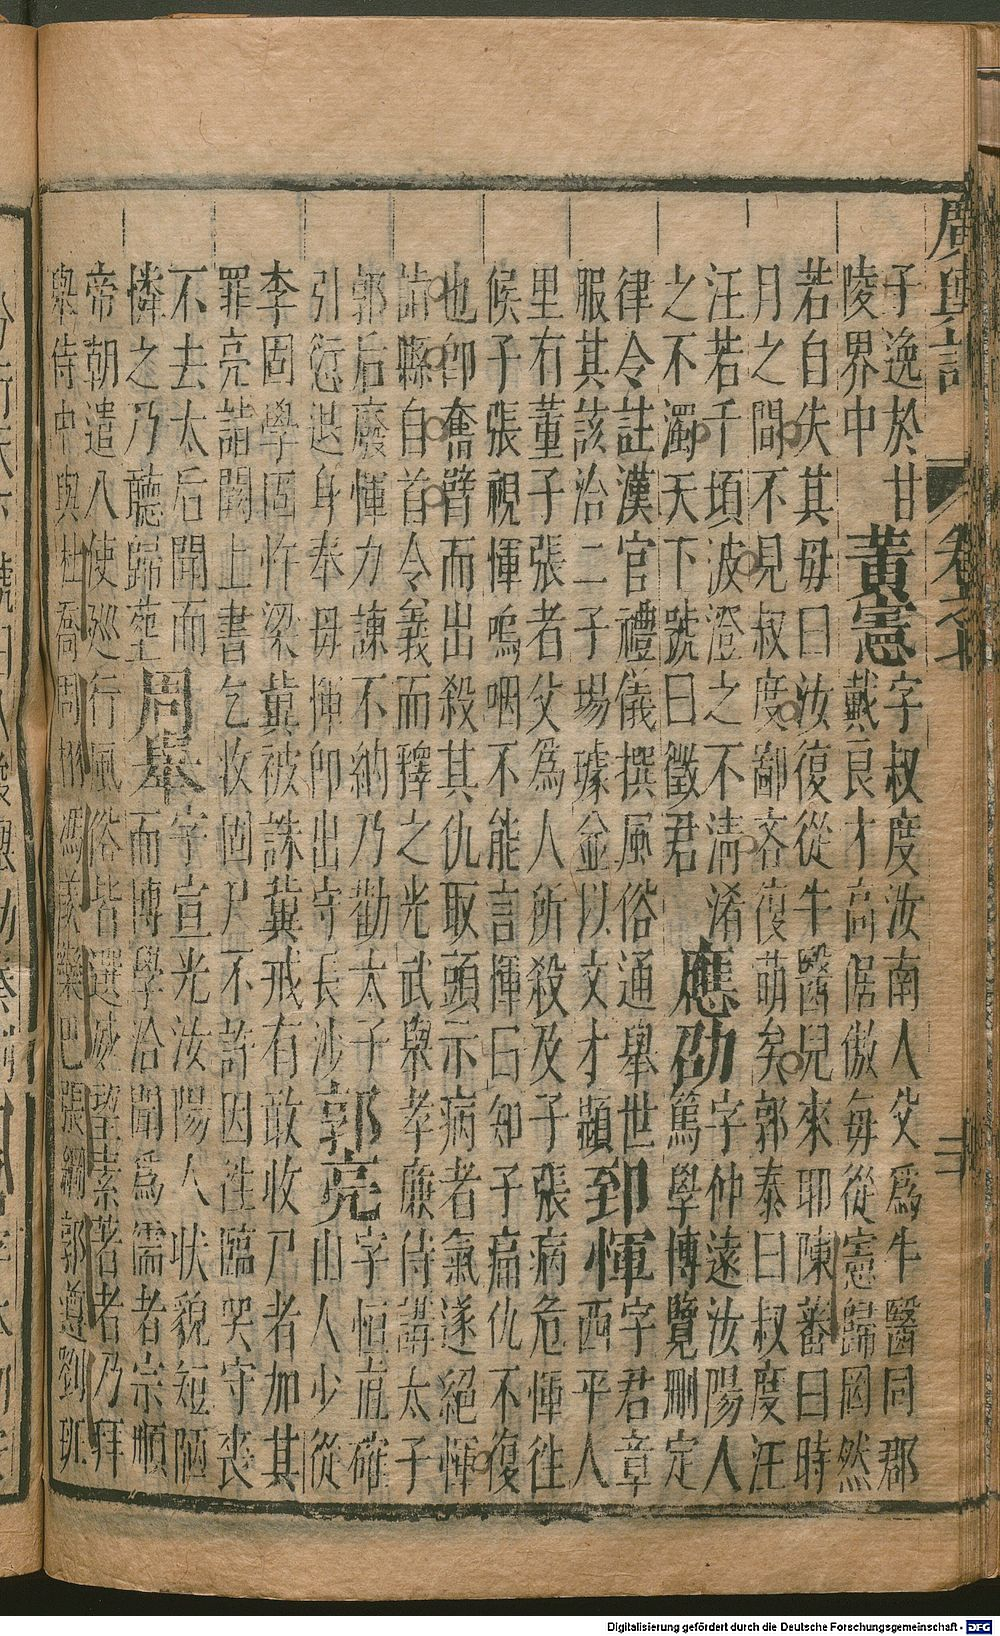 廣輿記 卷之七 二十
子逸於甘
陵界中
黃憲
字叔度汝南人父爲牛醫同郡
戴良才高倨傲每從憲歸罔然
若自失其母曰汝復從牛醫兒來耶陳蕃曰時
月之間不見叔度鄙吝復萌矣郭泰曰叔度汪
汪若千頃波澄之不清淆
之不濁天下號曰徵君
應劭
字仲遠汝陽人
篤學博覽刪定
律令註漢官禮儀撰風俗通舉世
服其該洽二子場璩並以文才顯
郅惲
字君章
西平人
里有董子張者父爲人所殺及子張病危惲往
候子張視惲嗚咽不能言惲曰知子痛仇不復
也卽奮臂而出殺其仇取頭示病者氣遂絕惲
詣縣自首令義而釋之光武舉孝廉侍講太子
郭后廢惲力諫不納乃勸太子
引愆退身奉母惲仰出守長沙
郭亮
字恒直確
山人少從
李固學固忤梁冀被誅冀戒有敢收尸者加其
罪亮詣闕上書乞收固尸不許因往臨哭守喪
不去太后聞而
憐之乃聽歸葬
周舉
字宣光汝陽人狀貌短陋
而博學洽聞爲儒者宗順
帝朝遣八使巡行風俗皆選威望素著者乃拜
舉侍中與杜喬周栩馮羨欒巴張綱郭遵劉班
Digitalisierung gefördert durch die Deutsche Forschungsgemeinschaft - DFG